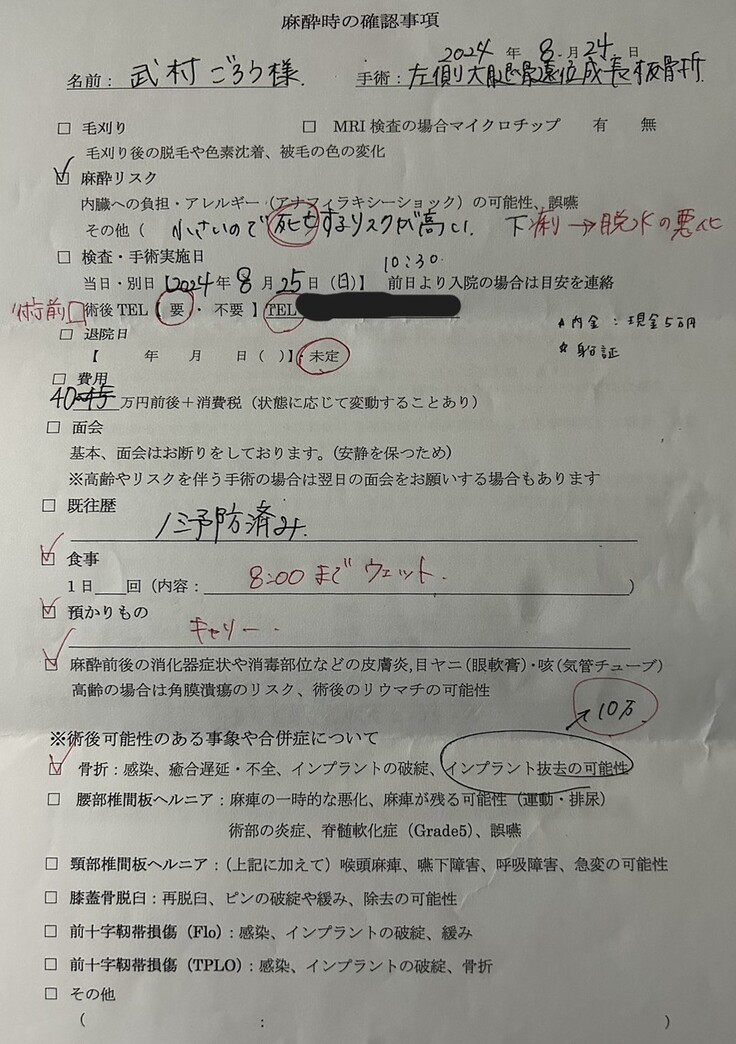 麻酔時の確認事項
2024 年 8 月 24 日
名前： 武村ごろう様 手術：左側大腿骨遠位成長板骨折
□ 毛刈り □ MRI 検査の場合マイクロチップ 有 無
毛刈り後の脱毛や色素沈着、被毛の色の変化
☑ 麻酔リスク
内臓への負担・アレルギー（アナフィラキシーショック）の可能性、誤嚥
その他（ 小さいので死亡するリスクが高い 下痢→脱水の悪化
□ 検査・手術実施日 10:30
当日・別日【2024年 8 月 25 日（日）】 前日より入院の場合は目安を連絡
術前□ 術後 TEL【 要 ・ 不要 】TEL
★内金：現金5万円
□ 退院日
☆身分証
【 年 月 日（ ）】・未定
□ 費用
40-45 万円前後＋消費税（状態に応じて変動することあり）
□ 面会
基本、面会はお断りをしております。（安静を保つため）
※高齢やリスクを伴う手術の場合は翌日の面会をお願いする場合もあります
□ 既往歴
ノミ予防済み
☑ 食事
1 日 回（内容： 8:00 まで ウェット. ）
☑ 預かりもの
キャリー.
☑ 麻酔前後の消化器症状や消毒部位などの皮膚炎,目ヤニ（眼軟膏）・咳（気管チューブ）
高齢の場合は角膜潰瘍のリスク、術後のリウマチの可能性
10万
※術後可能性のある事象や合併症について
☑ 骨折：感染、癒合遅延・不全、インプラントの破綻、インプラント抜去の可能性
□ 腰部椎間板ヘルニア：麻痺の一時的な悪化、麻痺が残る可能性（運動・排尿）
術部の炎症、脊髄軟化症（Grade5）、誤嚥
□ 頸部椎間板ヘルニア：（上記に加えて）喉頭麻痺、嚥下障害、呼吸障害、急変の可能性
□ 膝蓋骨脱臼：再脱臼、ピンの破綻や緩み、除去の可能性
□ 前十字靭帯損傷（Flo）：感染、インプラントの破綻、緩み
□ 前十字靭帯損傷（TPLO）：感染、インプラントの破綻、骨折
□ その他
（ ： ）